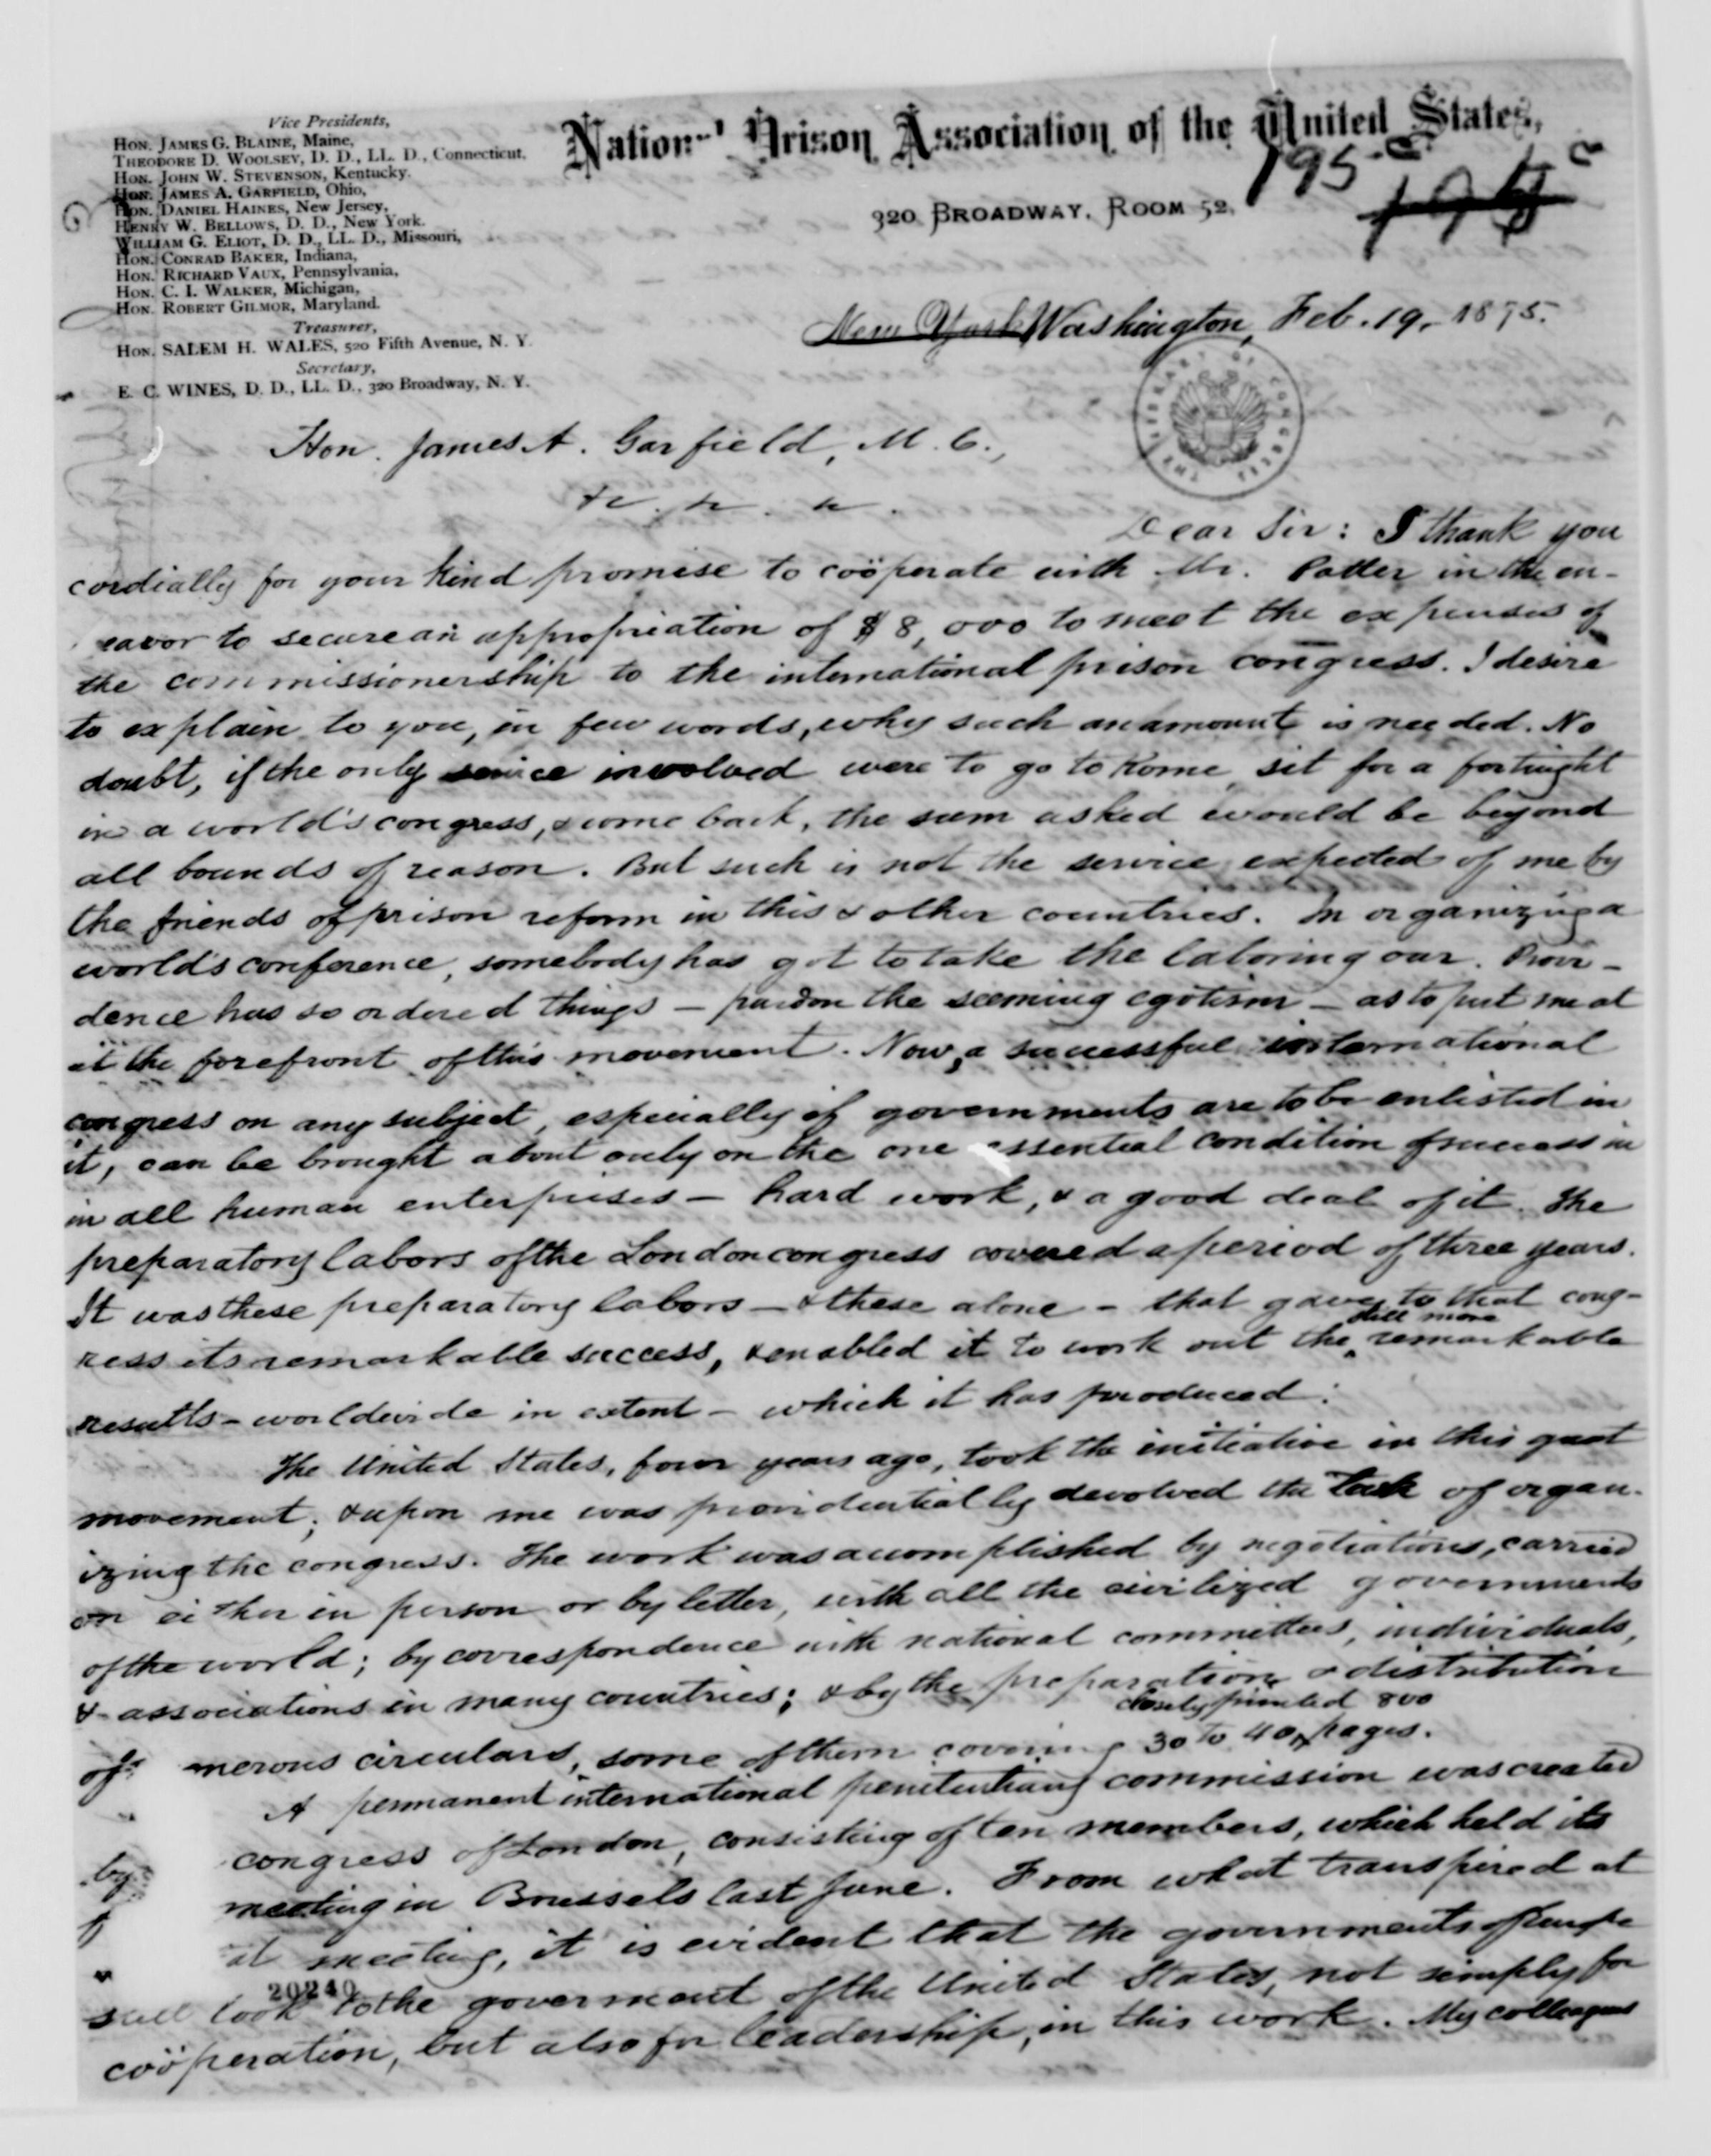 Vice Presidents,
HON. JAMES G. BLAINE, Maine,
THEODORE D. WOOLSEY, D. D., LL. D., Connecticut.
HON. JOHN W. STEVENSON, Kentucky.
HON. JAMES A. GARFIELD, Ohio,
HON. DANIEL HAINES, New Jersey,
HENRY W. BELLOWS, D. D., New York.
WILLIAM G. ELIOT, D. D., LL. D., Missouri,
HON. CONRAD BAKER, Indiana,
HON. RICHARD VAUX, Pennsylvania,
HON. C. I. WALKER, Michigan,
HON. ROBERT GILMOR, Maryland.
Treasurer,
HON. SALEM H. WALES, 520 Fifth Avenue, N. Y.
Secretary,
E. C. WINES, D. D., LL. D., 320 Broadway, N. Y.
National Prison Association of the United States,
320 BROADWAY, ROOM 52,
195
New York Washington, Feb. 19, 1875.
THE LIBRARY OF CONGRESS
Hon. James A. Garfield, M. C.,
Dear Sir: I thank you
cordially for your kind promise to coöperate with Mr. Potter in the en-
eavor to secure an appropriation of $8,000 to meet the expenses of
the commissionership to the international prison congress. I desire
to explain to you, in few words, why such an amount is needed. No
doubt, if the only service involved were to go to Rome, sit for a fortnight
in a world's congress, & come back, the sum asked would be beyond
all bounds of reason. But such is not the service expected of me by
the friends of prison reform in this & other countries. In organizing a
world's conference, somebody has got to take the laboring oar. Provi-
dence has so ordered things – pardon the seeming egotism – as to put me at
at the forefront of this movement. Now, a successful international
congress on any subject, especially if governments are to be enlisted in
it, can be brought about only on the one essential condition of success in
in all human enterprises – hard work, & a good deal of it. The
preparatory labors of the London congress covered a period of three years.
It was these preparatory labors – & these alone – that gave to that cong-
ress its remarkable success, & enabled it to work out the still more remarkable
results – worldwide in extent – which it has produced.
The United States, four years ago, took the initiative in this great
movement; & upon me was providentially devolved the task of organ-
izing the congress. The work was accomplished by negotiations, carried
on either in person or by letter, with all the civilized governments
of the world; by correspondence with national committees, individuals,
& associations in many countries; & by the preparation & distribution
of merous circulars, some of them covering 30 to 40 closely printed 8vo pages.
A permanent international penitentiary commission was created
by congress of London, consisting of ten members, which held its
meeting in Brussels last June. From what transpired at
at meeting, it is evident that the governments of Europe
still look to the goverment of the United States, not simply for
20240
coöperation, but also for leadership, in this work. My colleagues